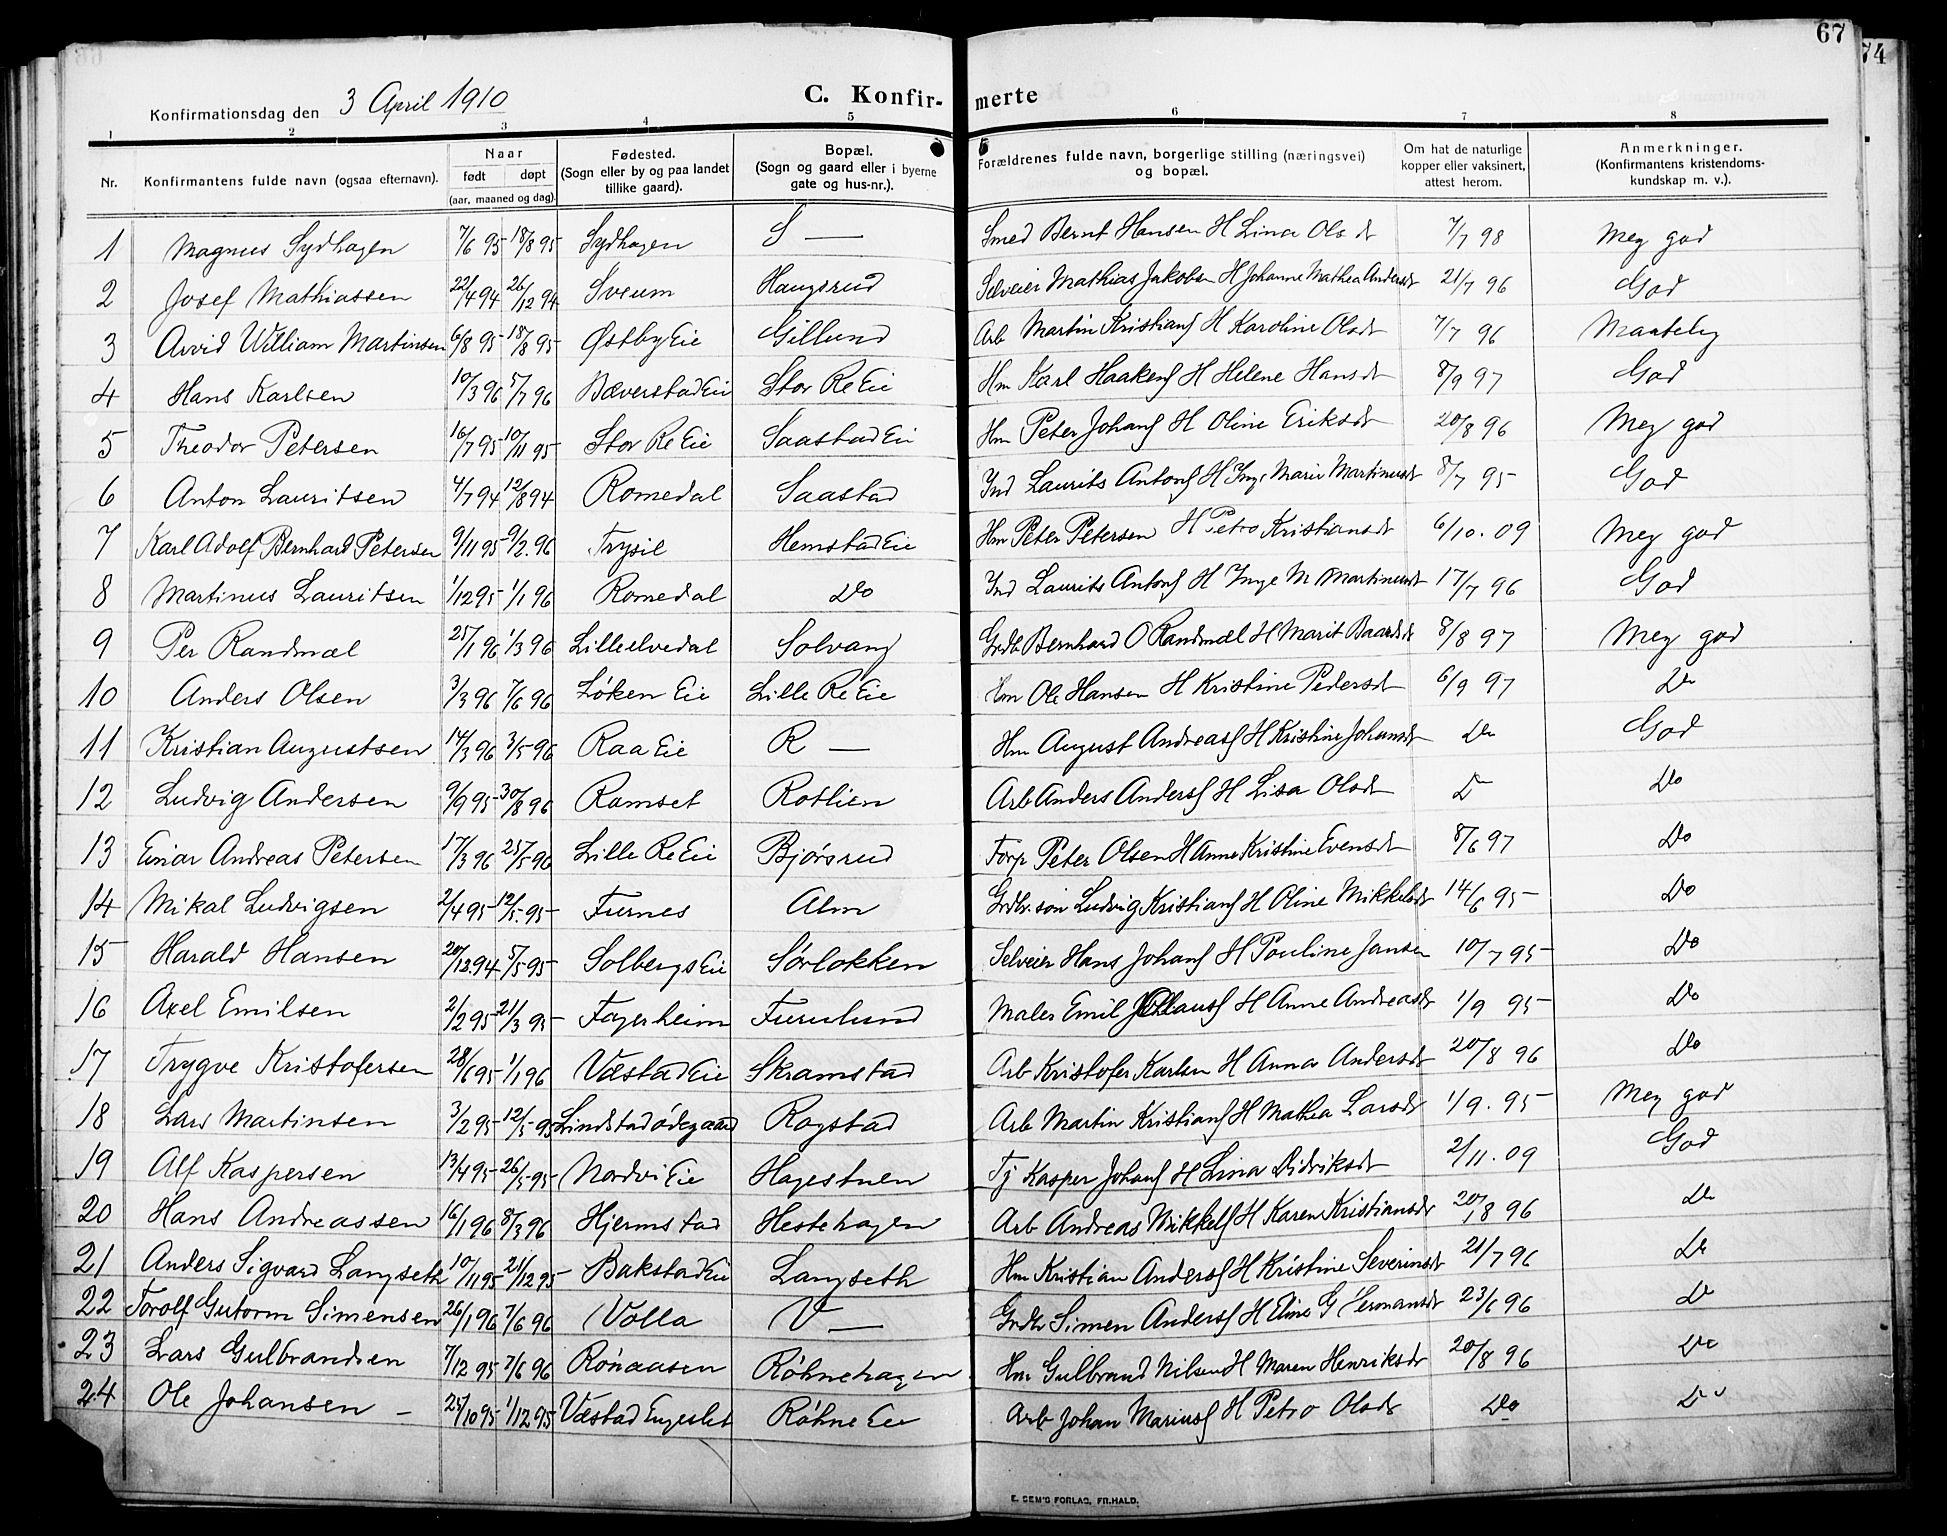 67
74
Konfirmationsdag den 3 April 1910
C. Konfir- merte
1 2 3 4 5 6 7 8
Nr. Konfirmantens fulde navn (ogsaa efternavn). Naar født døpt (aar, maaned og dag). Fødested. (Sogn eller by og paa landet tillike gaard). Bopæl. (Sogn og gaard eller i byerne gate og hus-nr.). Forældrenes fulde navn, borgerlige stilling (næringsvei) og bopæl. Om hat de naturlige kopper eller vaksinert, attest herom. Anmerkninger. (Konfirmantens kristendoms-kundskap m. v.).
1 Magnus Sydhagen 7/6 95 18/8 95 Sydhagen S — Smed Bernt Hansen H Lina Olsdt 7/7 98 Meg god
2 Josef Mathiassen 22/4 94 26/12 94 Sveum Haugsrud Selveier Mathias Jakobsen H Johanne Mathea Andersdt 21/7 96 God
3 Arvid William Martinsen 6/8 95 18/8 95 Østby Eie Gillund Arb Martin Kristians H Karoline Olsdt 7/7 96 Maatelig
4 Hans Karlsen 10/3 96 5/7 96 Bæverstad Eie Stor Re Eie Hm Karl Haakens H Helene Hansdt 8/9 97 God
5 Theodor Petersen 16/7 95 10/11 95 Stor Re Eie Saastad Eie Hm Peter Johans H Oline Eriksdt 20/8 96 Meg god
6 Anton Lauritsen 4/7 94 12/8 94 Romedal Saastad Ind Laurits Antons H Inge Marie Martinusdt 8/7 95 God
7 Karl Adolf Bernhard Petersen 9/11 95 9/2 96 Trysil Hemstad Eie Hm Peter Petersen H Petro Kristiansdt 6/10. 09 Meg god
8 Martinus Lauritsen 1/12 95 1/1 96 Romedal Do Ind Laurits Antons H Inge M Martinusdt 17/7 96 God
9 Per Randmæl 25/1 96 1/3 96 Lilleelvedal Solvang Grdbr Bernhard O Randmæl H Marit Baardsdt 8/8 97 Meg god
10 Anders Olsen 3/3 96 7/6 96 Løken Eie Lille Re Eie Hm Ole Hansen H Kristine Pedersdt 6/9 97 Do
11 Kristian Augustsen 14/3 96 3/5 96 Raa Eie R — Hm August Andreas H Kristine Johansdt Do God
12 Ludvig Andersen 9/9 95 30/8 96 Ramset Rotlien Arb Anders Anders H Lisa Olsdt D Do
13 Einar Andreas Petersen 17/3 96 25/5 96 Lille Re Eie Bjørsrud Torp Peter Olsen H Anne Kristine Evensdt 8/6 97 Do
14 Mikal Ludvigsen 2/4 95 12/5 95 Furnes Alm Grdbr. søn Ludvig Kristians H Oline Mikkelsdt 14/6 95 Do
15 Harald Hansen 20/12 94 5/5 95 Solbergs Eie Sørlokken Selveier Hans Johans H Pauline Jansen 10/7 95 Do
16 Axel Emilsen 2/2 95 21/3 95 Fagerheim Furulund Maler Emil H Anne Andreasdt 1/9 95 Do
17 Trygve Kristofersen 28/6 95 1/1 96 Væstad Eie Skramstad Arb Kristofer Karlsen H Anna Andersdt 20/8 96 Do
18 Lars Martinsen 3/2 95 12/5 95 Lindstadødegaard Rogstad Arb Martin Kristians H Mathea Larsdt 1/9. 95 Meg god
19 Alf Kaspersen 13/4 95 26/5 95 Nordvi Eie Hagestuen Tj Kasper Johans H Lina Didriksdt 2/11. 09 God
20 Hans Andreassen 16/1 96 8/3 96 Hjermstad Hestehagen Arb Andreas Mikkels H Karen Kristiansdt 20/8 96 Do
21 Anders Sigvard Langseth 10/11 95 21/12 95 Bakstad Eie Langseth Hm Kristian Anders H Kristine Severinsdt 21/7 96 Do
22 Torolf Gutorm Simensen 26/1 96 7/6 96 Volla V — Grdbr Simen Anders H Eline G Hermansdt 23/6 96 Do
23 Lars Gulbrandsen 7/12 95 7/6 96 Rønaasen Røhnehagen Hm Gulbrand Nilsen H Maren Henriksdt 20/8 96 Do
24 Ole Johansen — 25/10 95 1/12 95 Væstad Engeslet Røhne Eie Arb Johan Marius H Petro Olsdt Do Do
E. SEM'S FORLAG, FR.HALD.